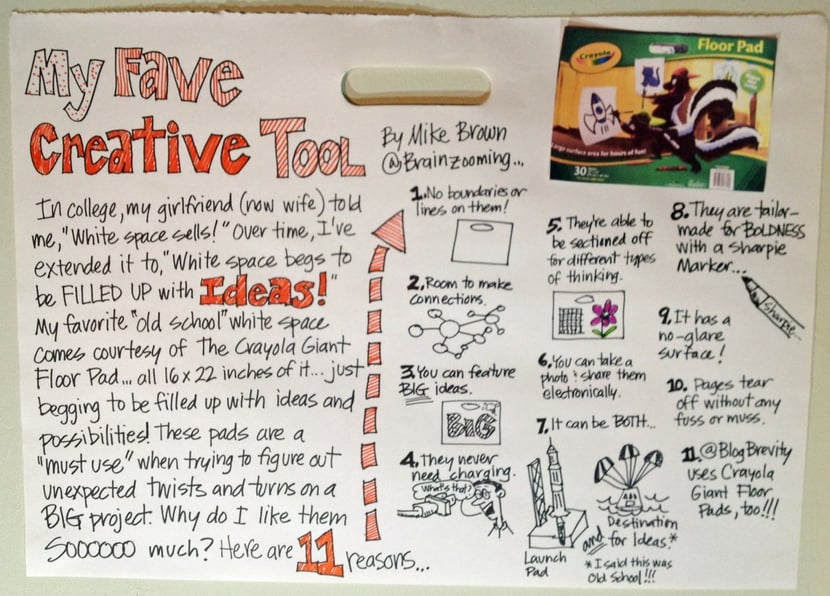 My Fave
Creative Tool
By Mike Brown
@Brainzooming...
In college, my girlfriend (now wife) told
me, "White space sells!" Over time, I've
extended it to, "White space begs to
be FILLED UP with Ideas!"
My favorite "old school" white space
comes courtesy of The Crayola Giant
Floor Pad... all 16x22 inches of it... just
begging to be filled up with ideas and
possibilities! These pads are a
"must use" when trying to figure out
unexpected twists and turns on a
BIG project. Why do I like them
Soooooo much? Here are 11 reasons...
1. No boundaries or
lines on them!
2. Room to make
connections.
3. You can feature
BIG ideas.
BIG
4. They never
need charging.
What's that?
5. They're able to
be sectioned off
for different types
of thinking.
6. You can take a
photo & share them
electronically.
7. It can be BOTH...
Launch
Pad
and Destination
for Ideas.*
* I said this was
Old School!!!
8. They are tailor-
made for BOLDNESS
with a sharpie
Marker...
Sharpie...
9. It has a
no-glare
surface!
10. Pages tear
off without any
fuss or muss.
11. @BlogBrevity
uses Crayola
Giant Floor
Pads, too!!!
Crayola
Floor Pad
Large surface area for hours of fun!
30